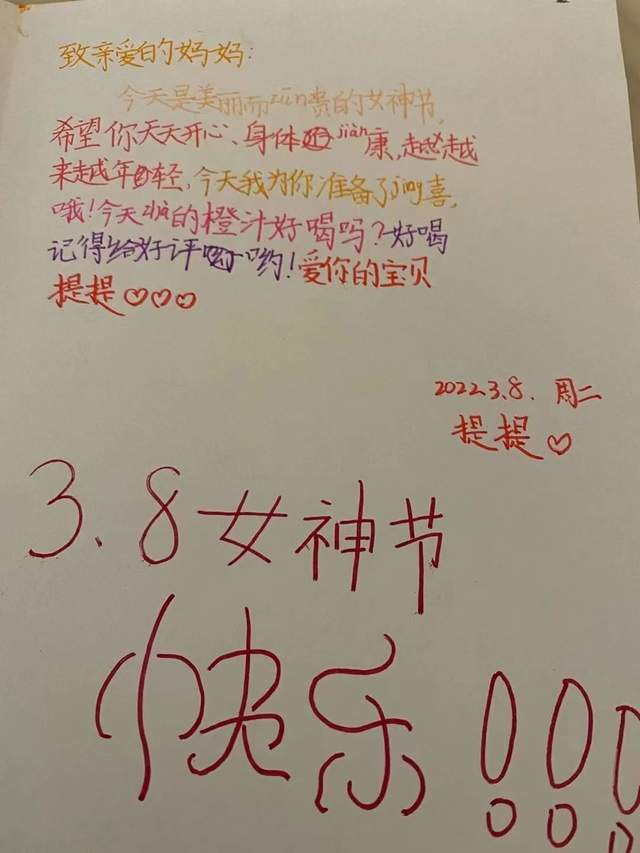 致亲爱的妈妈：
今天是美丽而zūn贵的女神节，
希望你天天开心、身体jiàn康，越越
来越年轻，今天我为你准备了jīng喜，
哦！今天zhà的橙汁好喝吗？好喝
记得给好评哟！爱你的宝贝
提提♡♡♡
2022.3.8. 周二
提提♡
3.8女神节
快乐!!!